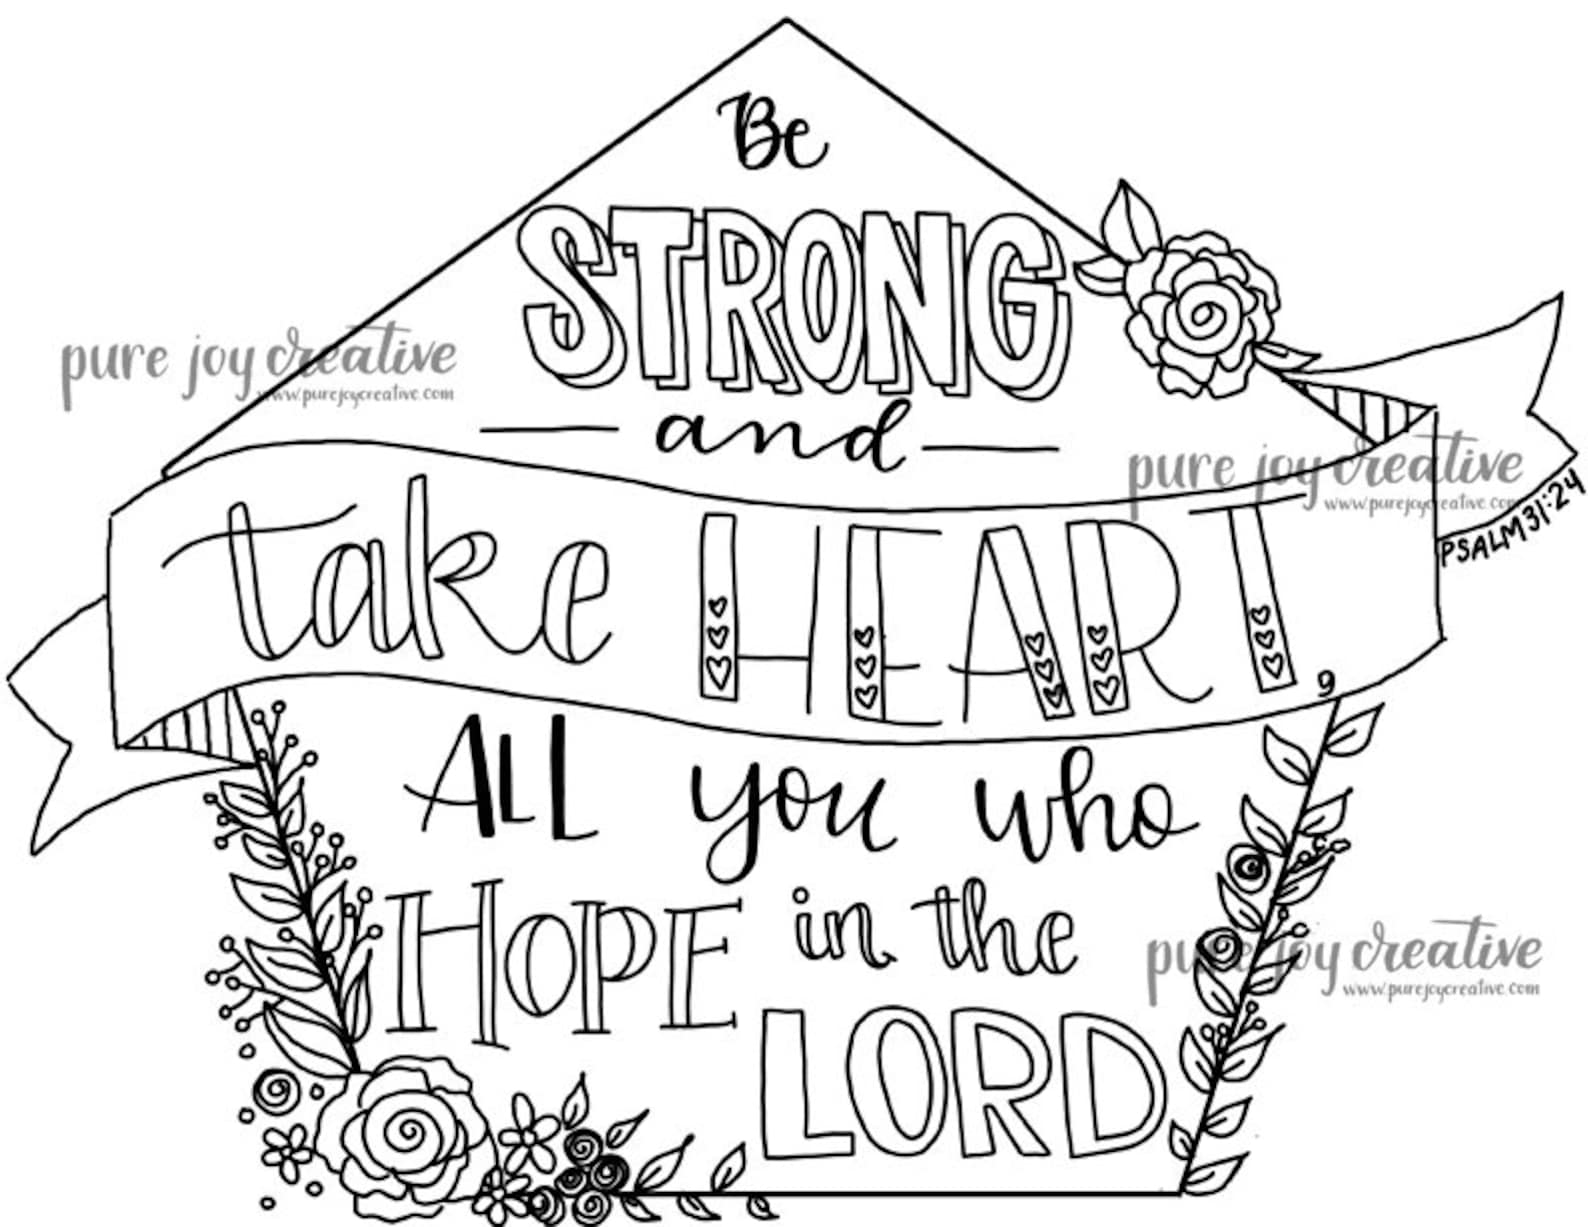 Be
STRONG
pure joy creative
www.purejoycreative.com
and
pure joy creative
www.purejoycreative.com
take HEART,
PSALM 31:24
ALL you who
HOPE in the
pure joy creative
www.purejoycreative.com
LORD